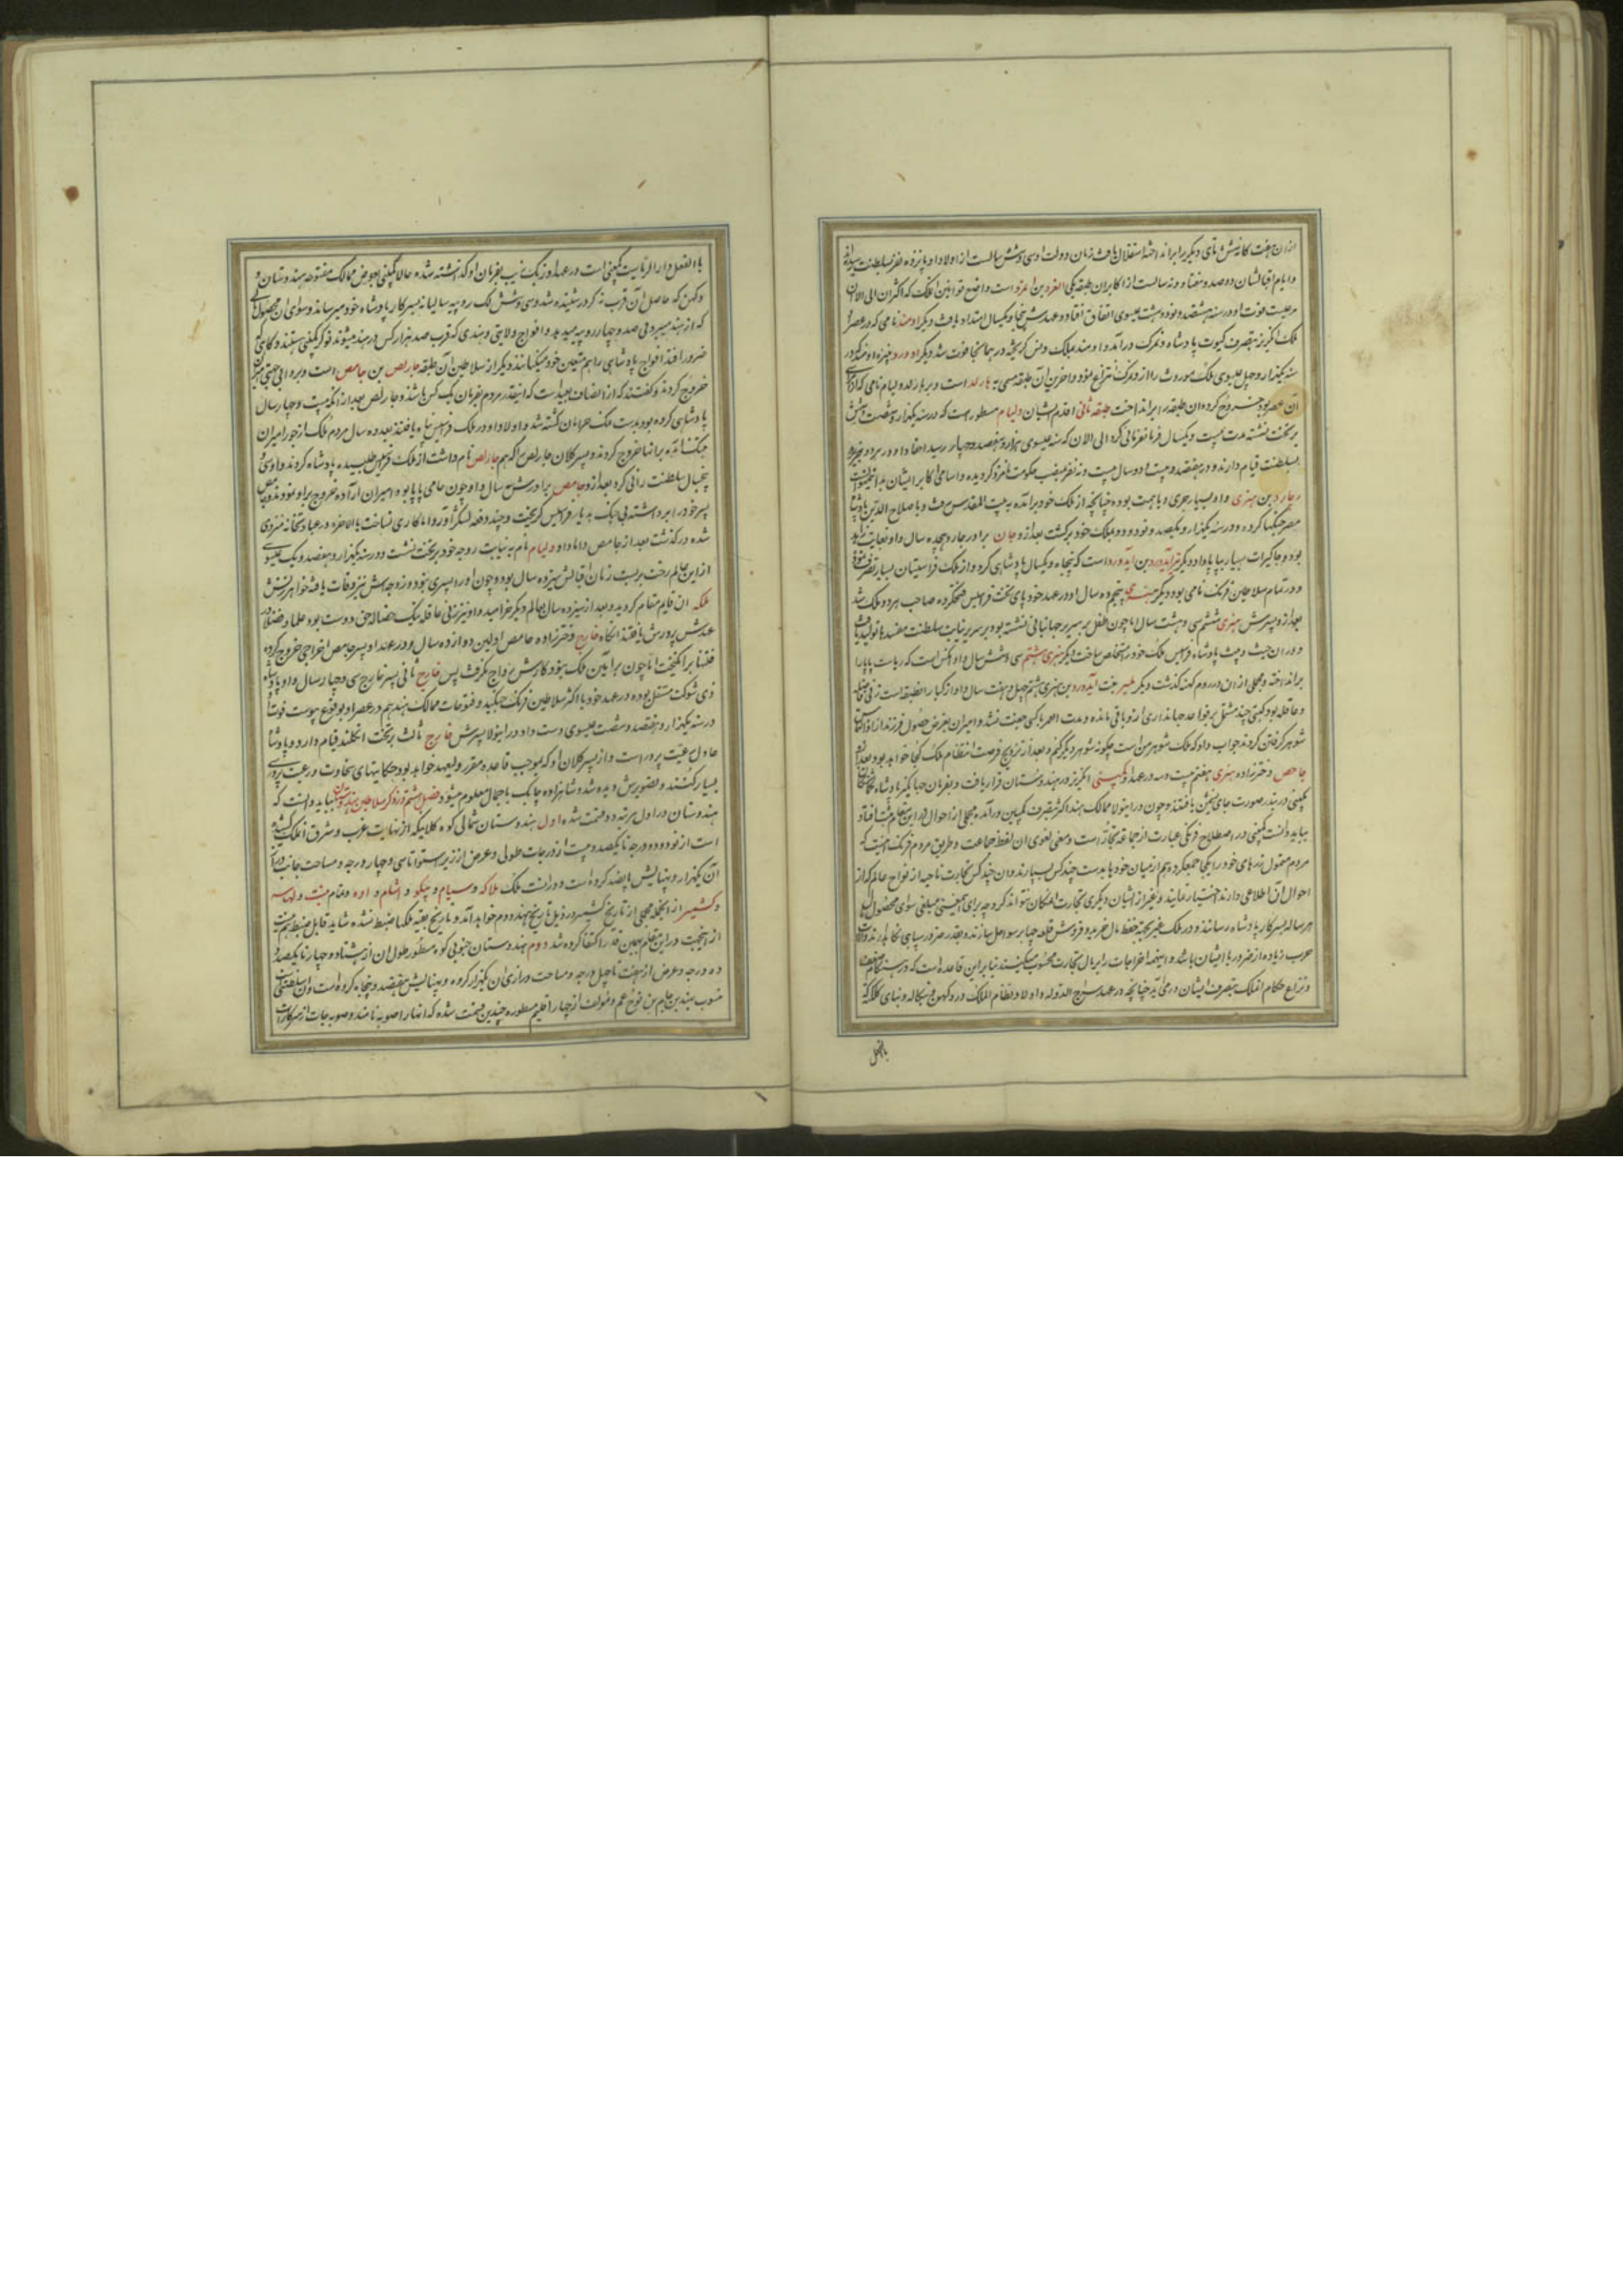 ازان هفت کانه شش تای دیگر برانداخته استقلال یافت زمان دولت او سی و شش سالست از اولاد او پانزده نفر سلطنت
و ایام اقبالشان دو صد و هفتاد و نه سالست از اکابران طبقه یکی الفرد بن است واضع قوانین ملک که اکثر آن الی الان
مرعیست فوت او در سنه هشتصد و نود و هشت عیسوی اتفاق افتاد و عهدش پنجاه و یکسال امتداد یافت دیگر ادمند نامی که در عصر او
ملک انگریز بتصرف پادشاه درآمد و ادمند بملک گریخته در همانجا فوت شد دیگر ادورد
سنه یکهزار و چهل عیسوی ملک موروث را از انتزاع نمود و آخرین آن طبقه مسمی به هارلد است و بر هارلد ولیام نامی که
آن عصر بود خروج کرده آن طبقه را برانداخت طبقه ثانی اقدم ایشان ولیام مسطور است که در سنه یکهزار و شصت و شش
بر تخت نشسته مدت بیست و یکسال فرمانفرمائی کرد الی الان که سنه عیسوی هزار و هفتصد و چهار رسید احفاد او
بسلطنت قیام دارند و در هفتصد و بیست و دو سال بیست و نه نفر بمنصب حکومت نامزد گردیده و اسامی اکابر ایشان
رچارد بن هنری و او بسیار جری و باهمت بوده چنانچه از ملک خود برآمده به بیت المقدس رفت و با صلاح الدین پادشاه
مصر جنگها کرده و در سنه یکهزار و یکصد و نود و دو بملک خود برگشت بعد ازو جان برادر رچارد هیجده سال و او بغایت
بود و جاگیرات بسیار بپاپا داد دیگر آیدورد بن آیدورد است که پنجاه و یکسال پادشاهی کرد و از ملک فرانسیسان بسیار بتصرف
و در تمام سلاطین فرنگ نامی بود دیگر هنری پنجم ده سال او در عهد خود پای تخت فرانسیس فتح کرده صاحب هر دو ملک شد
بعد ازو پسرش هنری ششم سی و هشت سال اما چون طفل بر سریر جهانبانی نشسته بود بر سریر نیابت سلطنت مفسدها تولید یافت
و پادشاه فرانسیس ملک خود را مستخلص ساخت دیگر هنری هشتم سی و شش سال و او آنکس است که ریاست پاپا را
برانداخته و مجملی ازان در روم گذشت دیگر بنت آیدورد بن هنری هشتم چهل و هفت سال و او از کبار آن طبقه است زنی
و عاقله بود کتبی چند مشتمل بر قواعد جهانداری ازو باقی مانده و مدت العمر با کسی جفت نشد و امیران بغرض حصول فرزند
شوهر گرفتن کردند جواب داد که ملک شوهر من است چگونه شوهر دیگر کنم و بعد از تزویج فرصت انتظام ملک کجا خواهد بود بعد ازو
جامص دخترزاده هنری هفتم بیست و سه در عهد او کمپنی انگریز در هندوستان قرار یافت و بفرمان جهانگیر پادشاه
کمپنی در بندر صورت جای نشیمن یافتند و چون در اینولا ممالک هند اکثر بتصرف کمپنی درآمده مجملی از احوال در این مقام ثبت افتاد
بباید دانست کمپنی در اصطلاح فرنگی عبارت از جماعه تجار است و معنی لغوی آن لفظ جماعت و طریق مردم فرنگ آنست که
مردم متمول زرهای خود را یکجا جمع کرده هم از میان خود بدست چند کس بسپارند و آن چند کس تجارت ناحیه از نواح عالم که از
احوال آن اطلاعی دارند اختیار نمایند و غیر از ایشان دیگری تجارت آن مکان نتواند کرد و برای این معنی مبلغی سوای محصول
هر ساله بسرکار پادشاه رسانند و در ملک غیر بجز فقط مال خرید و فروش قلعه جها بر سواحل سازند و بقدر ضرور سپاهی نگاه دارند و
حرب زیاده از ضرور با ایشان باشد و اینهمه اخراجات را بر مال تجارت محسوب میکنند بنابراین قاعده است که
و نزاع حکام آن ملک بتصرف ایشان درمی آید چنانچه در عهد سراج الدوله و اولاد نظام الملک در دکهن و بنگاله و بنای کلکته
بالفعل
بالفعل دار الریاست کمپنی است در عهد اورنگ زیب بفرمان او گذاشته شده حالا کمپنی بعوض ممالک مفتوحه هندوستان و
دکهن که حاصل آن قریب نه کرور شنیده شد سی و شش لک روپیه سالیانه بسرکار پادشاه خود میرساند و سوای آن محصول
که از هند میبرد فی صد و چهار روپیه میدهد و افواج ولایتی و هندی که قریب صد هزار کس در هند میشوند نوکر کمپنی هستند و گاهی که
ضرور افتد افواج پادشاهی را هم متعین خود میکنانند دیگر از سلاطین آن طبقه چارلص بن جامص است و بر او اهالی
خروج کردند و گفتند که از انصاف بعید است که اینقدر مردم بفرمان یک کس باشند و چارلص بعد از آنکه بیست و چهار سال
پادشاهی کرده بود بدست ملک حرامان کشته شد و اولاد او در ملک فرانسیس پناه یافتند بعد ده سال مردم ملک از جور امیران
بتنگ آمده بر آنها خروج کردند و پسر کلان چارلص را که هم چارلص نام داشت از ملک فرانسیس طلبیده پادشاه کردند و او سی و
پنجسال سلطنت رانی کرد بعد ازو جامص برادرش سه سال و او چون حامی پاپا بود امیران اراده خروج بر او نمودند
پسر خود را برداشته بی جنگ به پاریس فرانسیس گریخت و چند دفعه لشکر آورد اما کاری نساخت بالاخره در عبادتخانه منزوی
شده درگذشت بعد از جامص داماد او ولیام نام به نیابت زوجه خود بر تخت نشست و در سنه یکهزار و هفتصد و یک عیسوی
ازین عالم رخت بربست زمان اقبالش سیزده سال بود و چون او را پسری نبود و زوجه اش نیز وفات یافته خواهر زنش
ملکه ان قایم مقام گردید و بعد از سیزده سال بعالم دیگر خرامید و او نیز زنی عاقله نیک خصال حق دوست بود علما و فضلا در
عهدش پرورش یافتند آنگاه جارج دخترزاده جامص اولین دوازده سال و در عهد او پسر جامص اخراجی خروج کرده
فتنها برانگیخت اما چون بر آیین ملک نبود کارش رواج نگرفت پس جارج ثانی پسر جارج سی و چهار سال و او پادشاه
ذی شوکت مستقل بوده در عهد خود با اکثر سلاطین فرنگ جنگید و فتوحات ممالک هند هم در عصر او بوقوع پیوست فوتش
در سنه یکهزار و هفتصد و شصت عیسوی دست داد و در اینولا پسرش جارج ثالث بر تخت انگلند قیام دارد و پادشاه
عادل رعیت پرور است و از پسر کلان او که بموجب قاعده مقرر ولیعهد خواهد بود حکایتهای سخاوت و رعیت پروری
بسیار گفتند و تصویرش دیده شد و شاهزاده چابک باجمال معلوم میشود فصل هشتم در ذکر سلاطین هندوستان بباید دانست که
هندوستان در اول مرتبه دو قسمت شده اول هندوستان شمالی کوه کلابیکه از نهایت غرب و شرق آن ملک کشیده
است از نود و دو درجه تا یکصد و بیست از درجات طولی و عرض از زیر استوا تا سی و چهار درجه و مساحت جانب درازی
آن یکهزار و پهنایش پانصد کروه است و در آنست ملک ملاکه و سیام و پیکو و اشام و اوه و مقام تبت و لهاسه
و کشمیر از آنجمله مجملی از تاریخ کشمیر در ذیل تاریخ هند دوم خواهد آمد و تاریخ بقیه ملکها ضبط نشده شاید قابل ضبط هم نیست
ازینجهت در این مقام بهمین قدر اکتفا کرده شد دوم هندوستان جنوبی کوه مسطور طول آن از هشتاد و چهار تا یکصد و
ده درجه و عرض از هفت تا چهل درجه و مساحت درازی آن یکهزار کروه و پهنایش هفتصد و پنجاه کروه است و آن
منسوب بهند بن حام بن نوح عم و مؤلف از چهار اقلیم مسطوره چندین قسمت شده که آنها را صوبه نامند و صوبه جات از سرکارات